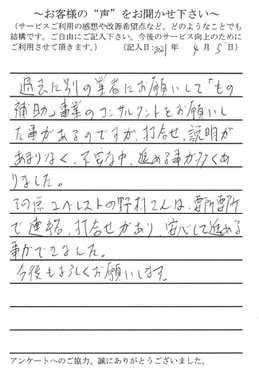 ～お客様の“声”をお聞かせ下さい～
（サービスご利用の感想や改善希望点など、どのようなことでも
結構です。ご自由にご記入下さい。今後のサービス向上のために
ご利用させて頂きます。）　（記入日：2021年 4月 5日）
過去に別の業者にお願いして「もの
補助」事業のコンサルタントをお願いし
た事があるのですが、打合せ、説明が
あまりなく、不安な中、進める事が多くあ
りました。
その点エベレストの野村さんは、要所要所
で連絡、打合せがあり、安心して進める
事ができました。
今後もよろしくお願いします。
アンケートへのご協力、誠にありがとうございました。